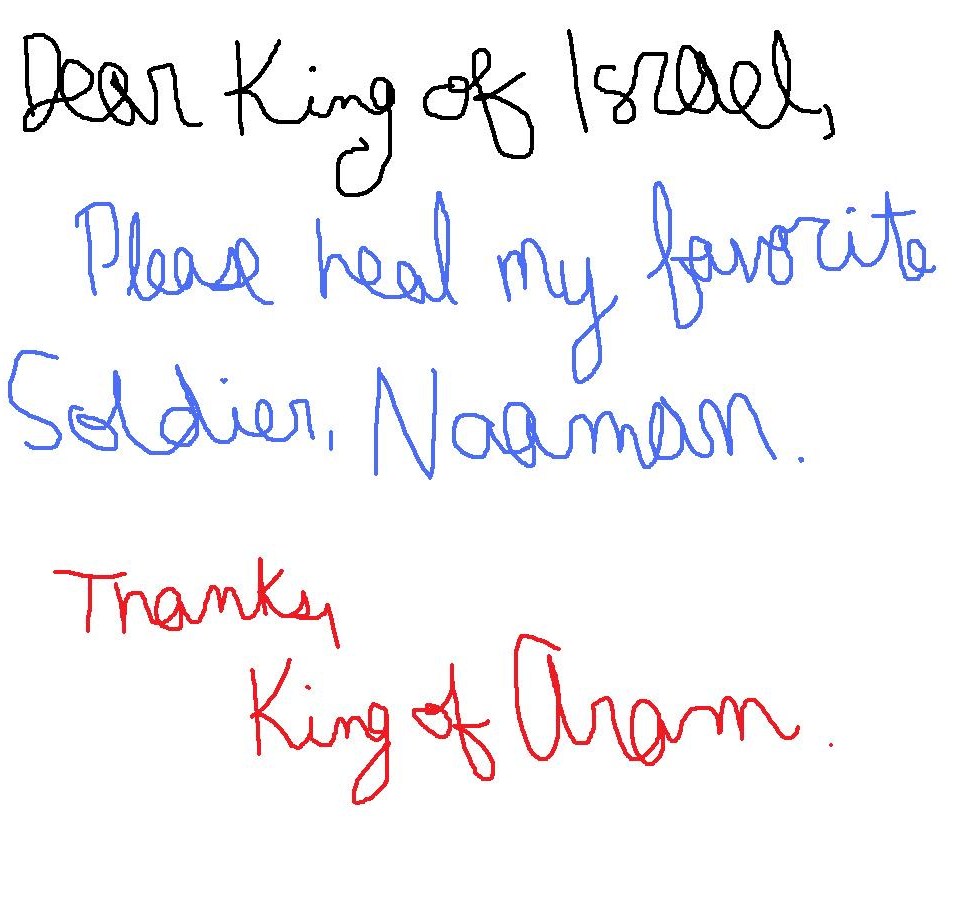 Dear King of Israel,
Please heal my favorite
Soldier, Naaman.
Thanks,
King of Aram.